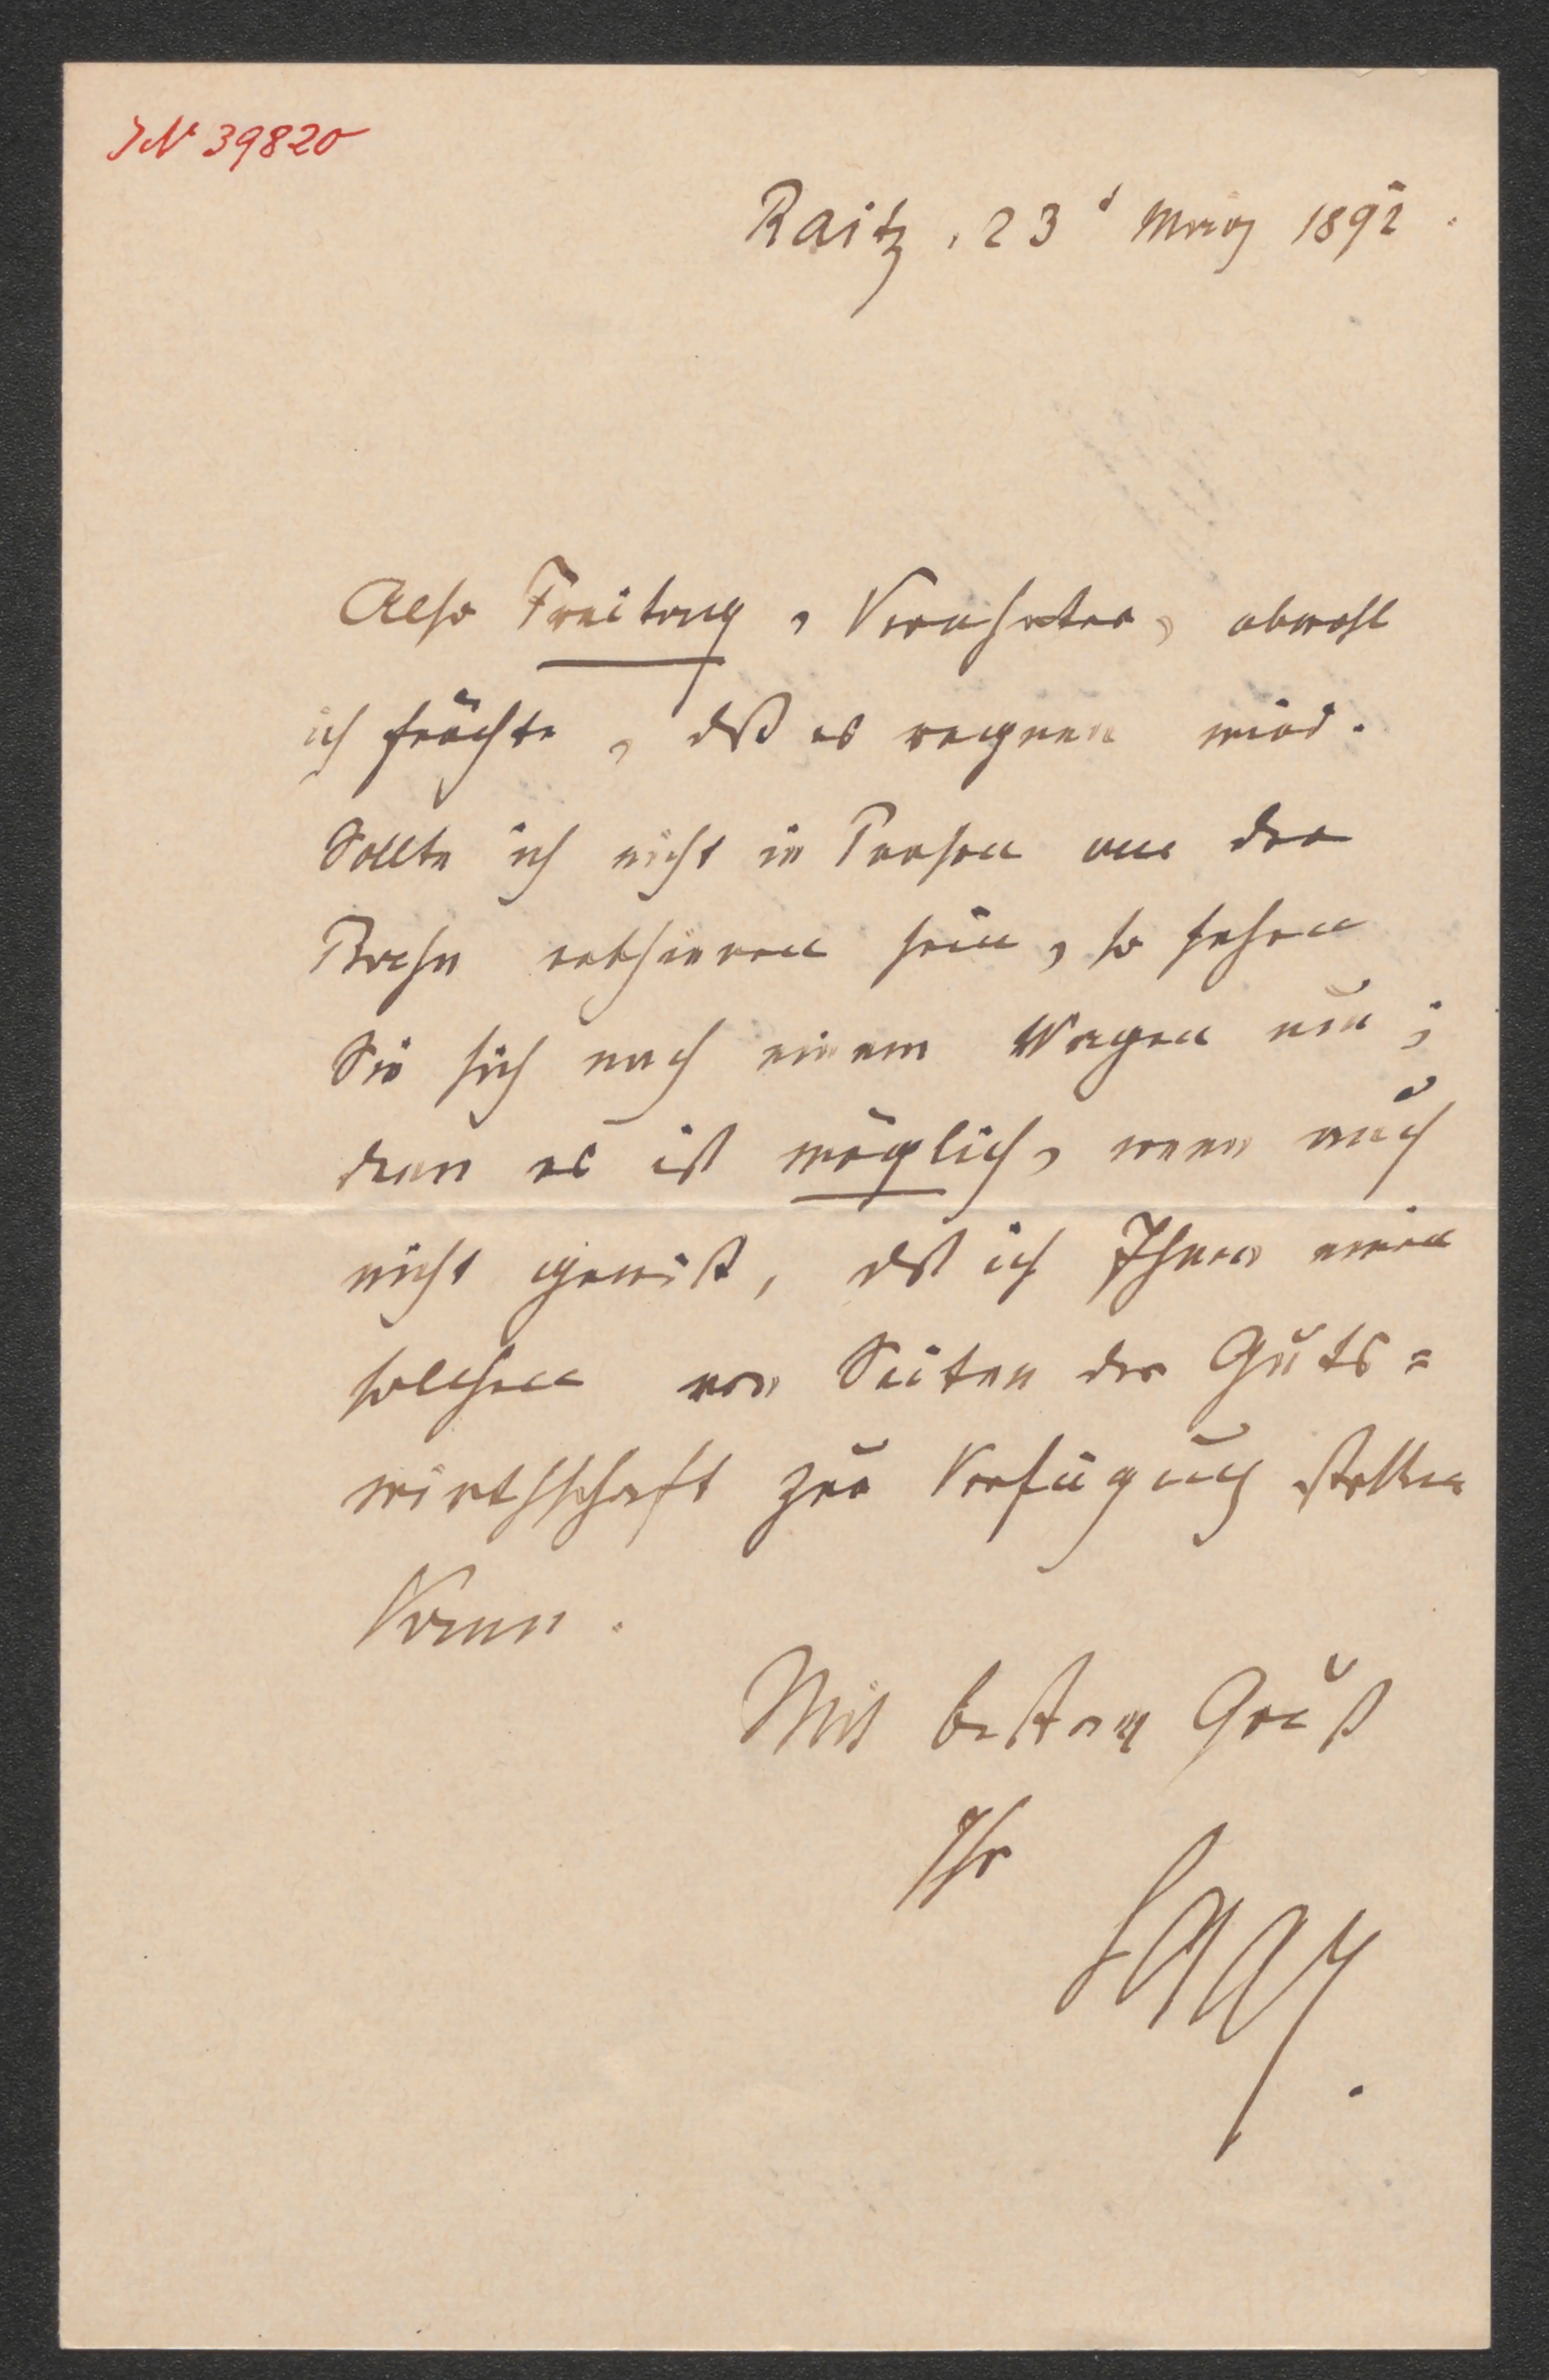 JN 39820
Raitz, 23t März 1892.
Also Freitag, Verehrter, obwohl
ich fürchte, dß es regnen wird.
Sollte ich nicht in Person an der
Bahn erschienen sein, so sehen
Sie sich nach einem Wagen um;
denn es ist möglich, wenn auch
nicht gewiß, dß ich Ihnen einen
solchen von Seiten der Guts=
wirthschaft zur Verfügung stellen
kann.
Mit bestem Gruß
Ihr
Saar.